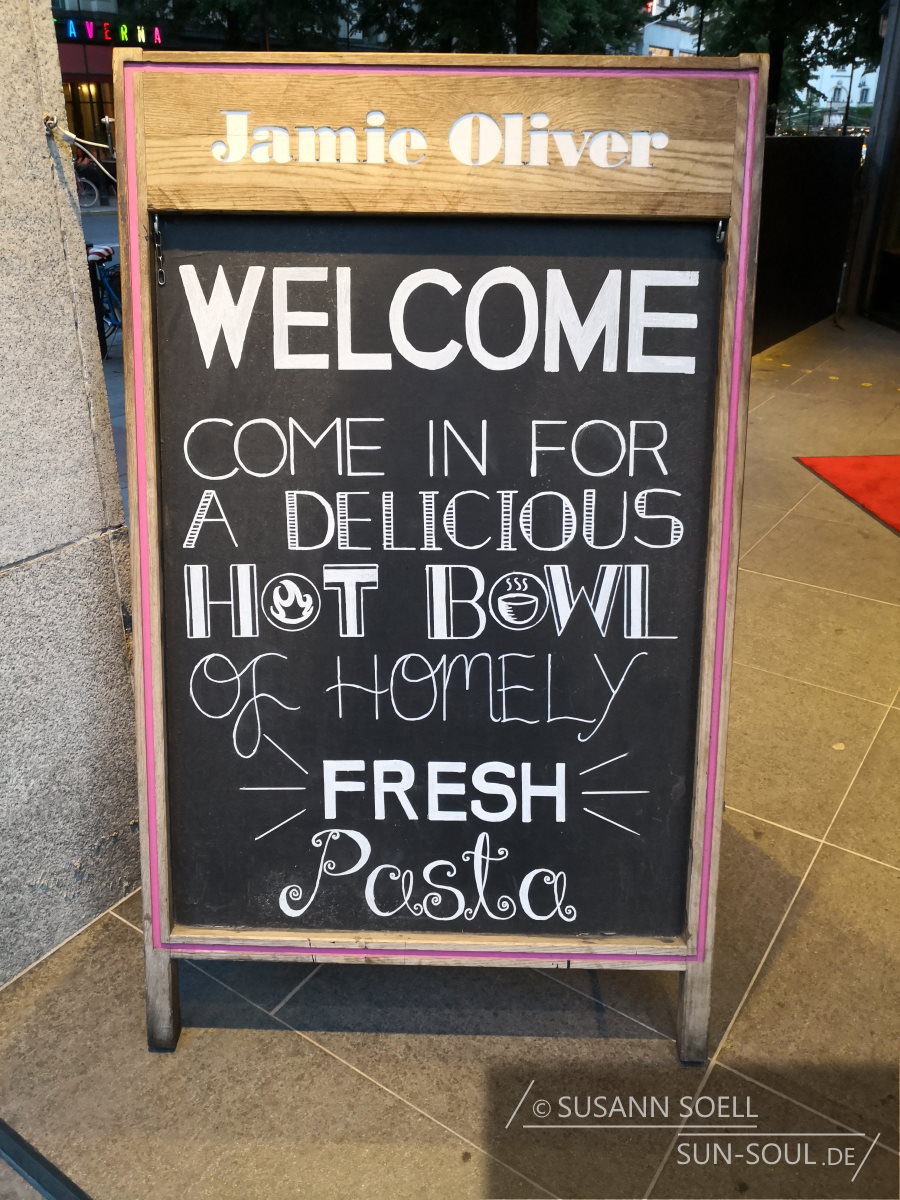 AVERNA
Jamie Oliver
WELCOME
COME IN FOR
A DELICIOUS
HOT BOWL
OF HOMELY
FRESH
Pasta
© SUSANN SOELL
SUN-SOUL.DE